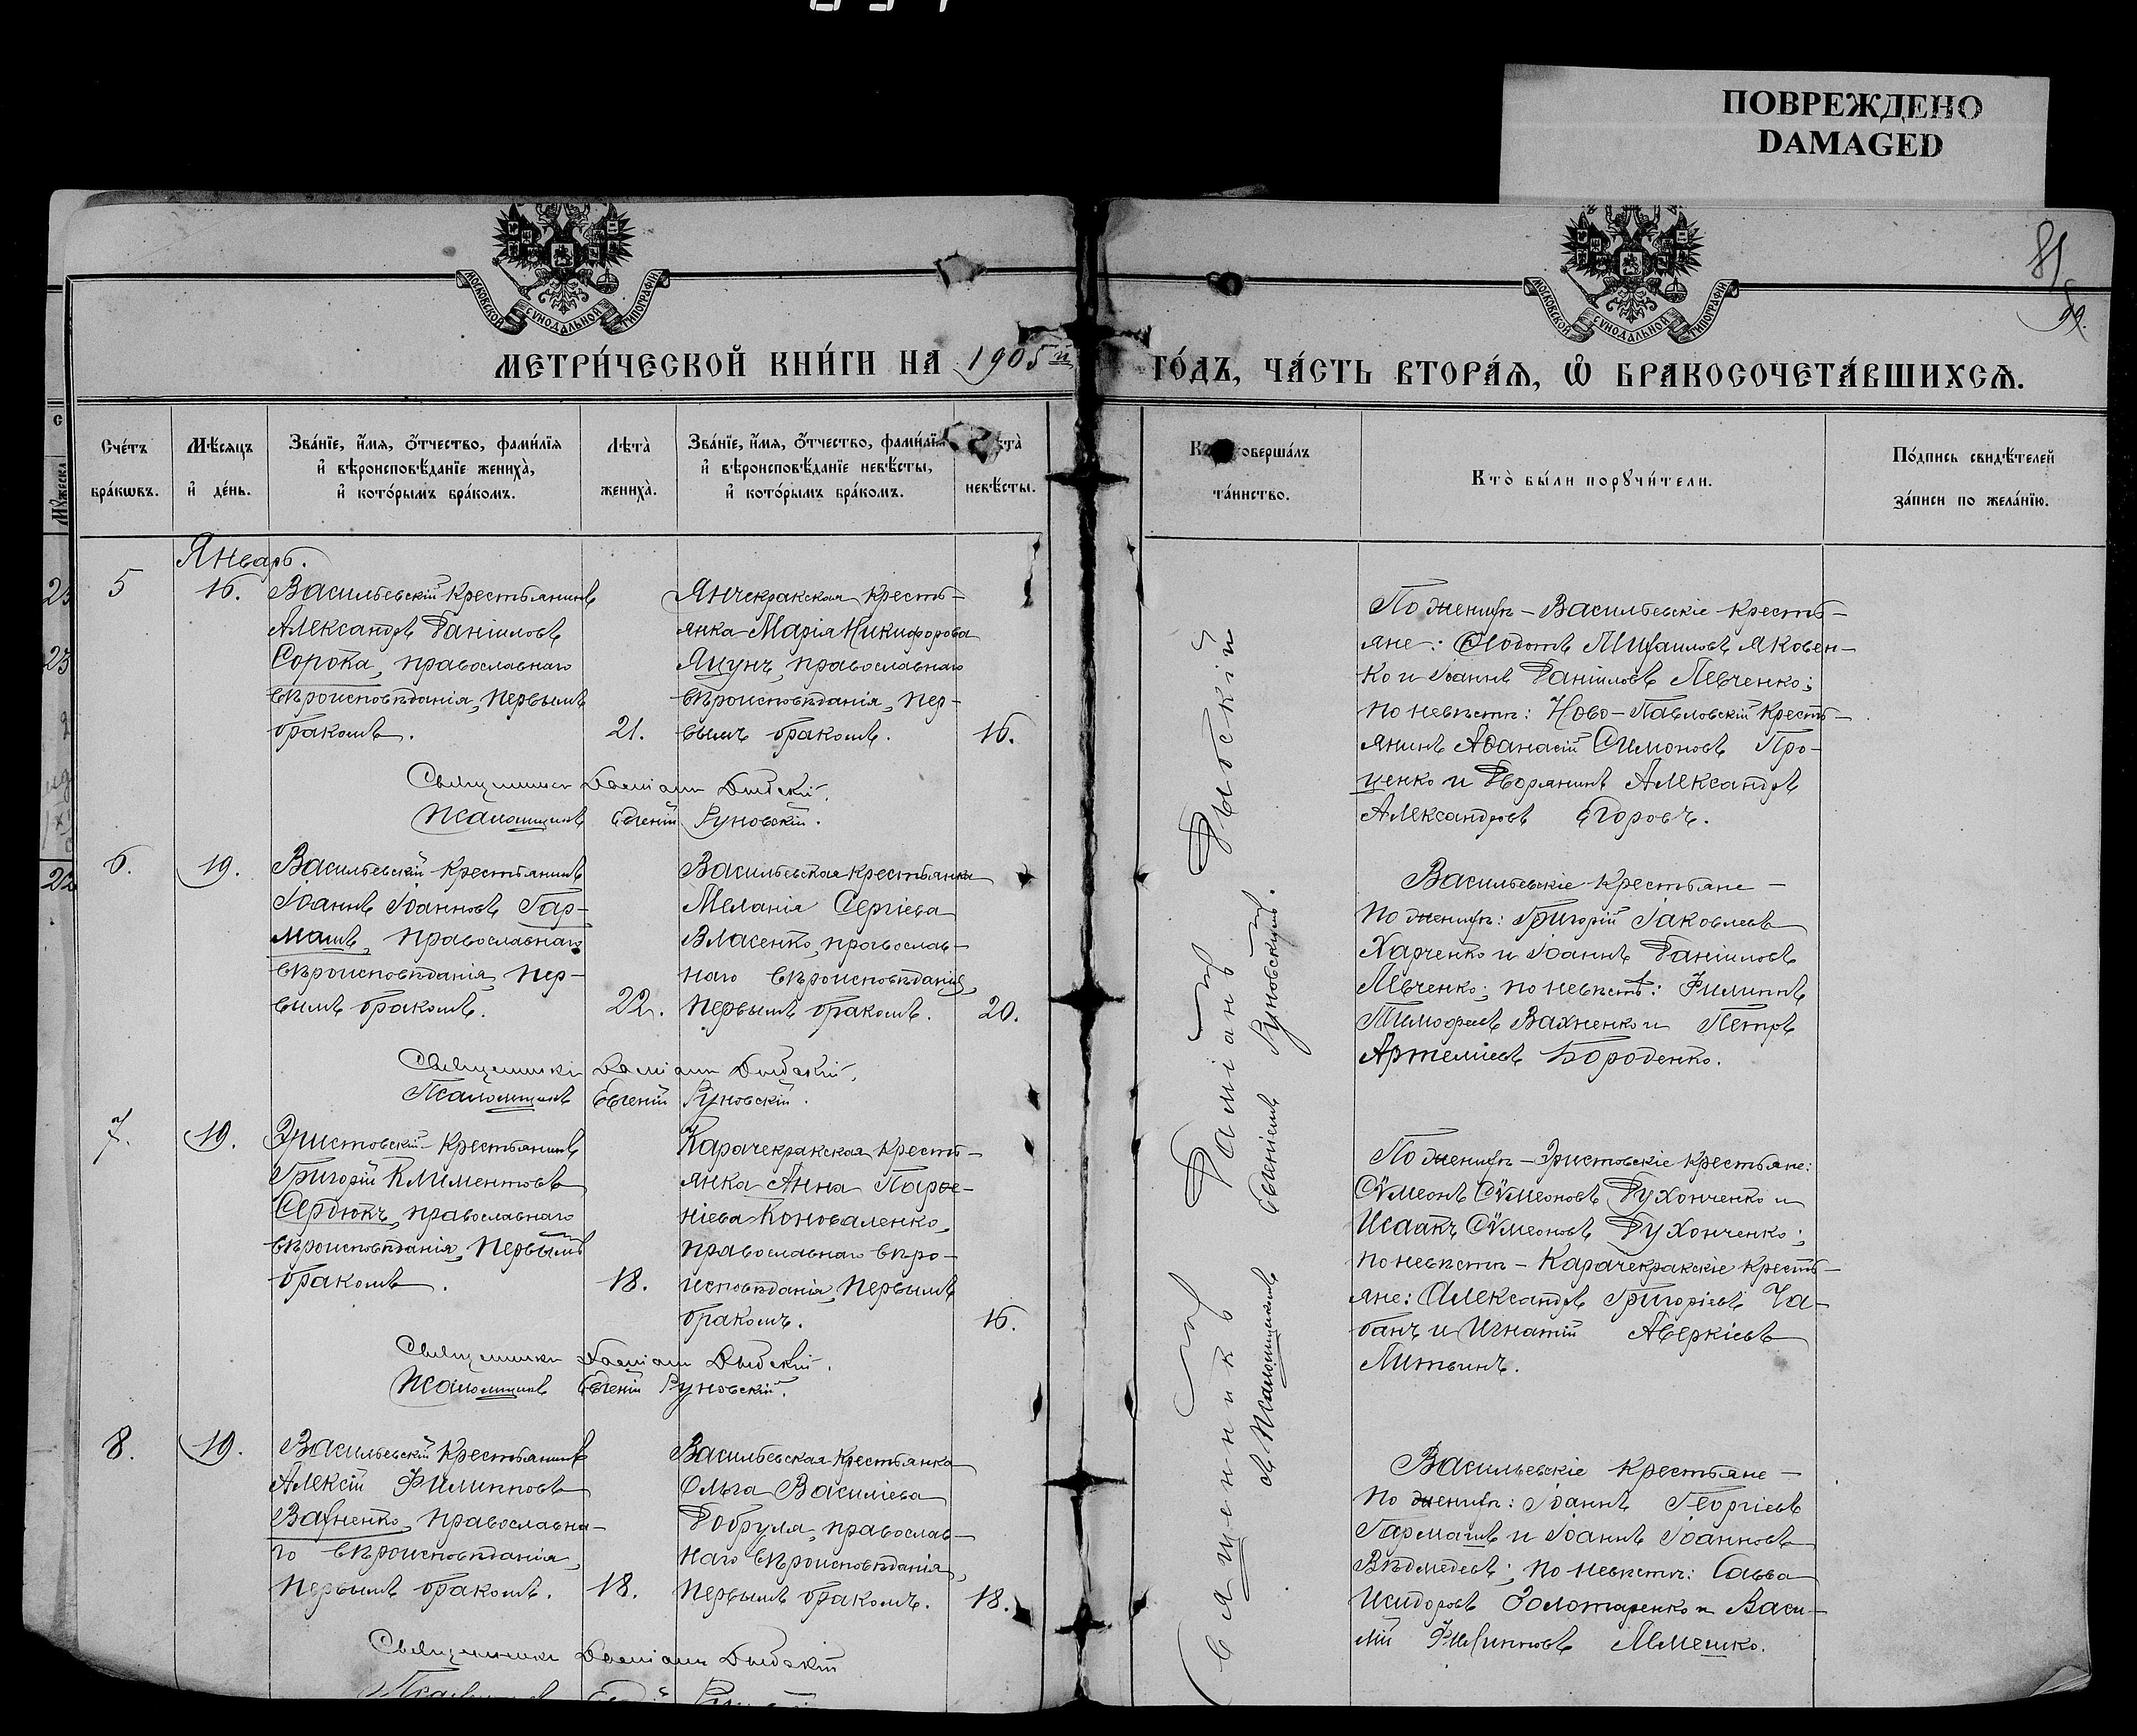 ПОВРЕЖДЕНО
DAMAGED
МОСКОВСКОЙ СѴНОДАЛЬНОЙ ТИПОГРАФІИ
МОСКОВСКОЙ СѴНОДАЛЬНОЙ ТИПОГРАФІИ
81
МЕТРИ́ЧЕСКОЙ КНИ́ГИ НА 1905й
ГО́ДЪ, ЧА́СТЬ ВТОРА́Ѧ, Ѡ҆ БРАКОСОЧЕТА́ВШИХСѦ.
Сче́тъ
бра́кѡвъ.
Мѣ́сяцъ
и҆ де́нь.
Зва́нїе, и҆́мя, ѻ҆́тчество, фами́лїя
и҆ вѣроисповѣ́данїе жениха̀,
и҆ кото́рымъ бра́комъ.
Лѣта̀
жениха̀.
Зва́нїе, и҆́мя, ѻ҆́тчество, фами́лїя
и҆ вѣроисповѣ́данїе невѣ́сты,
и҆ кото́рымъ бра́комъ.
невѣ́сты.
совершалъ
та́инство.
Кто̀ бы́ли порꙋчи́тели.
По́дпись свидѣ́телей
за́писи по жела́нїю.
Январь.
5
16.
Васильевскій крестьянинъ
Александръ Даніиловъ
Сорока, православнаго
вѣроисповѣданія, первымъ
бракомъ.
21.
Янчекракская кресть-
янка Марія Никифорова
Яцунъ, православнаго
вѣроисповѣданія, пер-
вымъ бракомъ.
16.
По женихѣ - Васильевскіе кресть-
яне: Ѳеодотъ Михаиловъ Яковен-
ко и Іоаннъ Даніиловъ Левченко;
по невѣстѣ: Ново-Павловскій кресть-
янинъ Аѳанасій Симоновъ Про-
ценко и Дворянинъ Александръ
Александровъ Егоровъ.
Священникъ Даміанъ Дыбскій.
Псаломщикъ Евгеній Руновскій.
6.
19.
Васильевскій крестьянинъ
Іоаннъ Іоанновъ Гар-
машъ, православнаго
вѣроисповѣданія, пер-
вымъ бракомъ.
22.
Васильевская крестьянка
Меланія Сергіева
Власенко, православ-
наго вѣроисповѣданія,
первымъ бракомъ.
20.
Васильевскіе крестьяне -
по женихѣ: Григорій Іаковлевъ
Харченко и Іоаннъ Даніиловъ
Левченко; по невѣстѣ: Филиппъ
Тимофеевъ Вахненко и Петръ
Артеміевъ Бороденко.
Священникъ Даміанъ Дыбскій.
Псаломщикъ Евгеній Руновскій.
7.
19.
Эристовскій крестьянинъ
Григорій Климентовъ
Сердюкъ, православнаго
вѣроисповѣданія, первымъ
бракомъ.
18.
Карачекракская кресть-
янка Анна Парѳе-
ніева Коноваленко,
православнаго вѣро-
исповѣданія, первымъ
бракомъ.
16.
По женихѣ - Эристовскіе крестьяне:
Сѵмеонъ Сѵмеоновъ Духонченко и
Исаакъ Сѵмеоновъ Духонченко;
по невѣстѣ - Карачекракскіе кресть-
яне: Александръ Григоріевъ Ча-
банъ и Игнатій Аверкіевъ
Литвинъ.
Священникъ Даміанъ Дыбскій.
Псаломщикъ Евгеній Руновскій.
8.
19.
Васильевскій крестьянинъ
Алексій Филипповъ
Вахненко, православна-
го вѣроисповѣданія,
первымъ бракомъ.
18.
Васильевская крестьянка
Ольга Василіева
Добруля, православ-
наго вѣроисповѣданія,
первымъ бракомъ.
18.
Васильевскіе крестьяне -
по женихѣ: Іоаннъ Георгіевъ
Гармашъ и Іоаннъ Іоанновъ
Вѣдмедевъ; по невѣстѣ: Савва
Исидоровъ Золотаренко и Васи-
лій Филипповъ Лемешко.
Священникъ Даміанъ Дыбскій
Священникъ Даміанъ Дыбскій
съ Псаломщикомъ Евгеніемъ Руновскимъ.